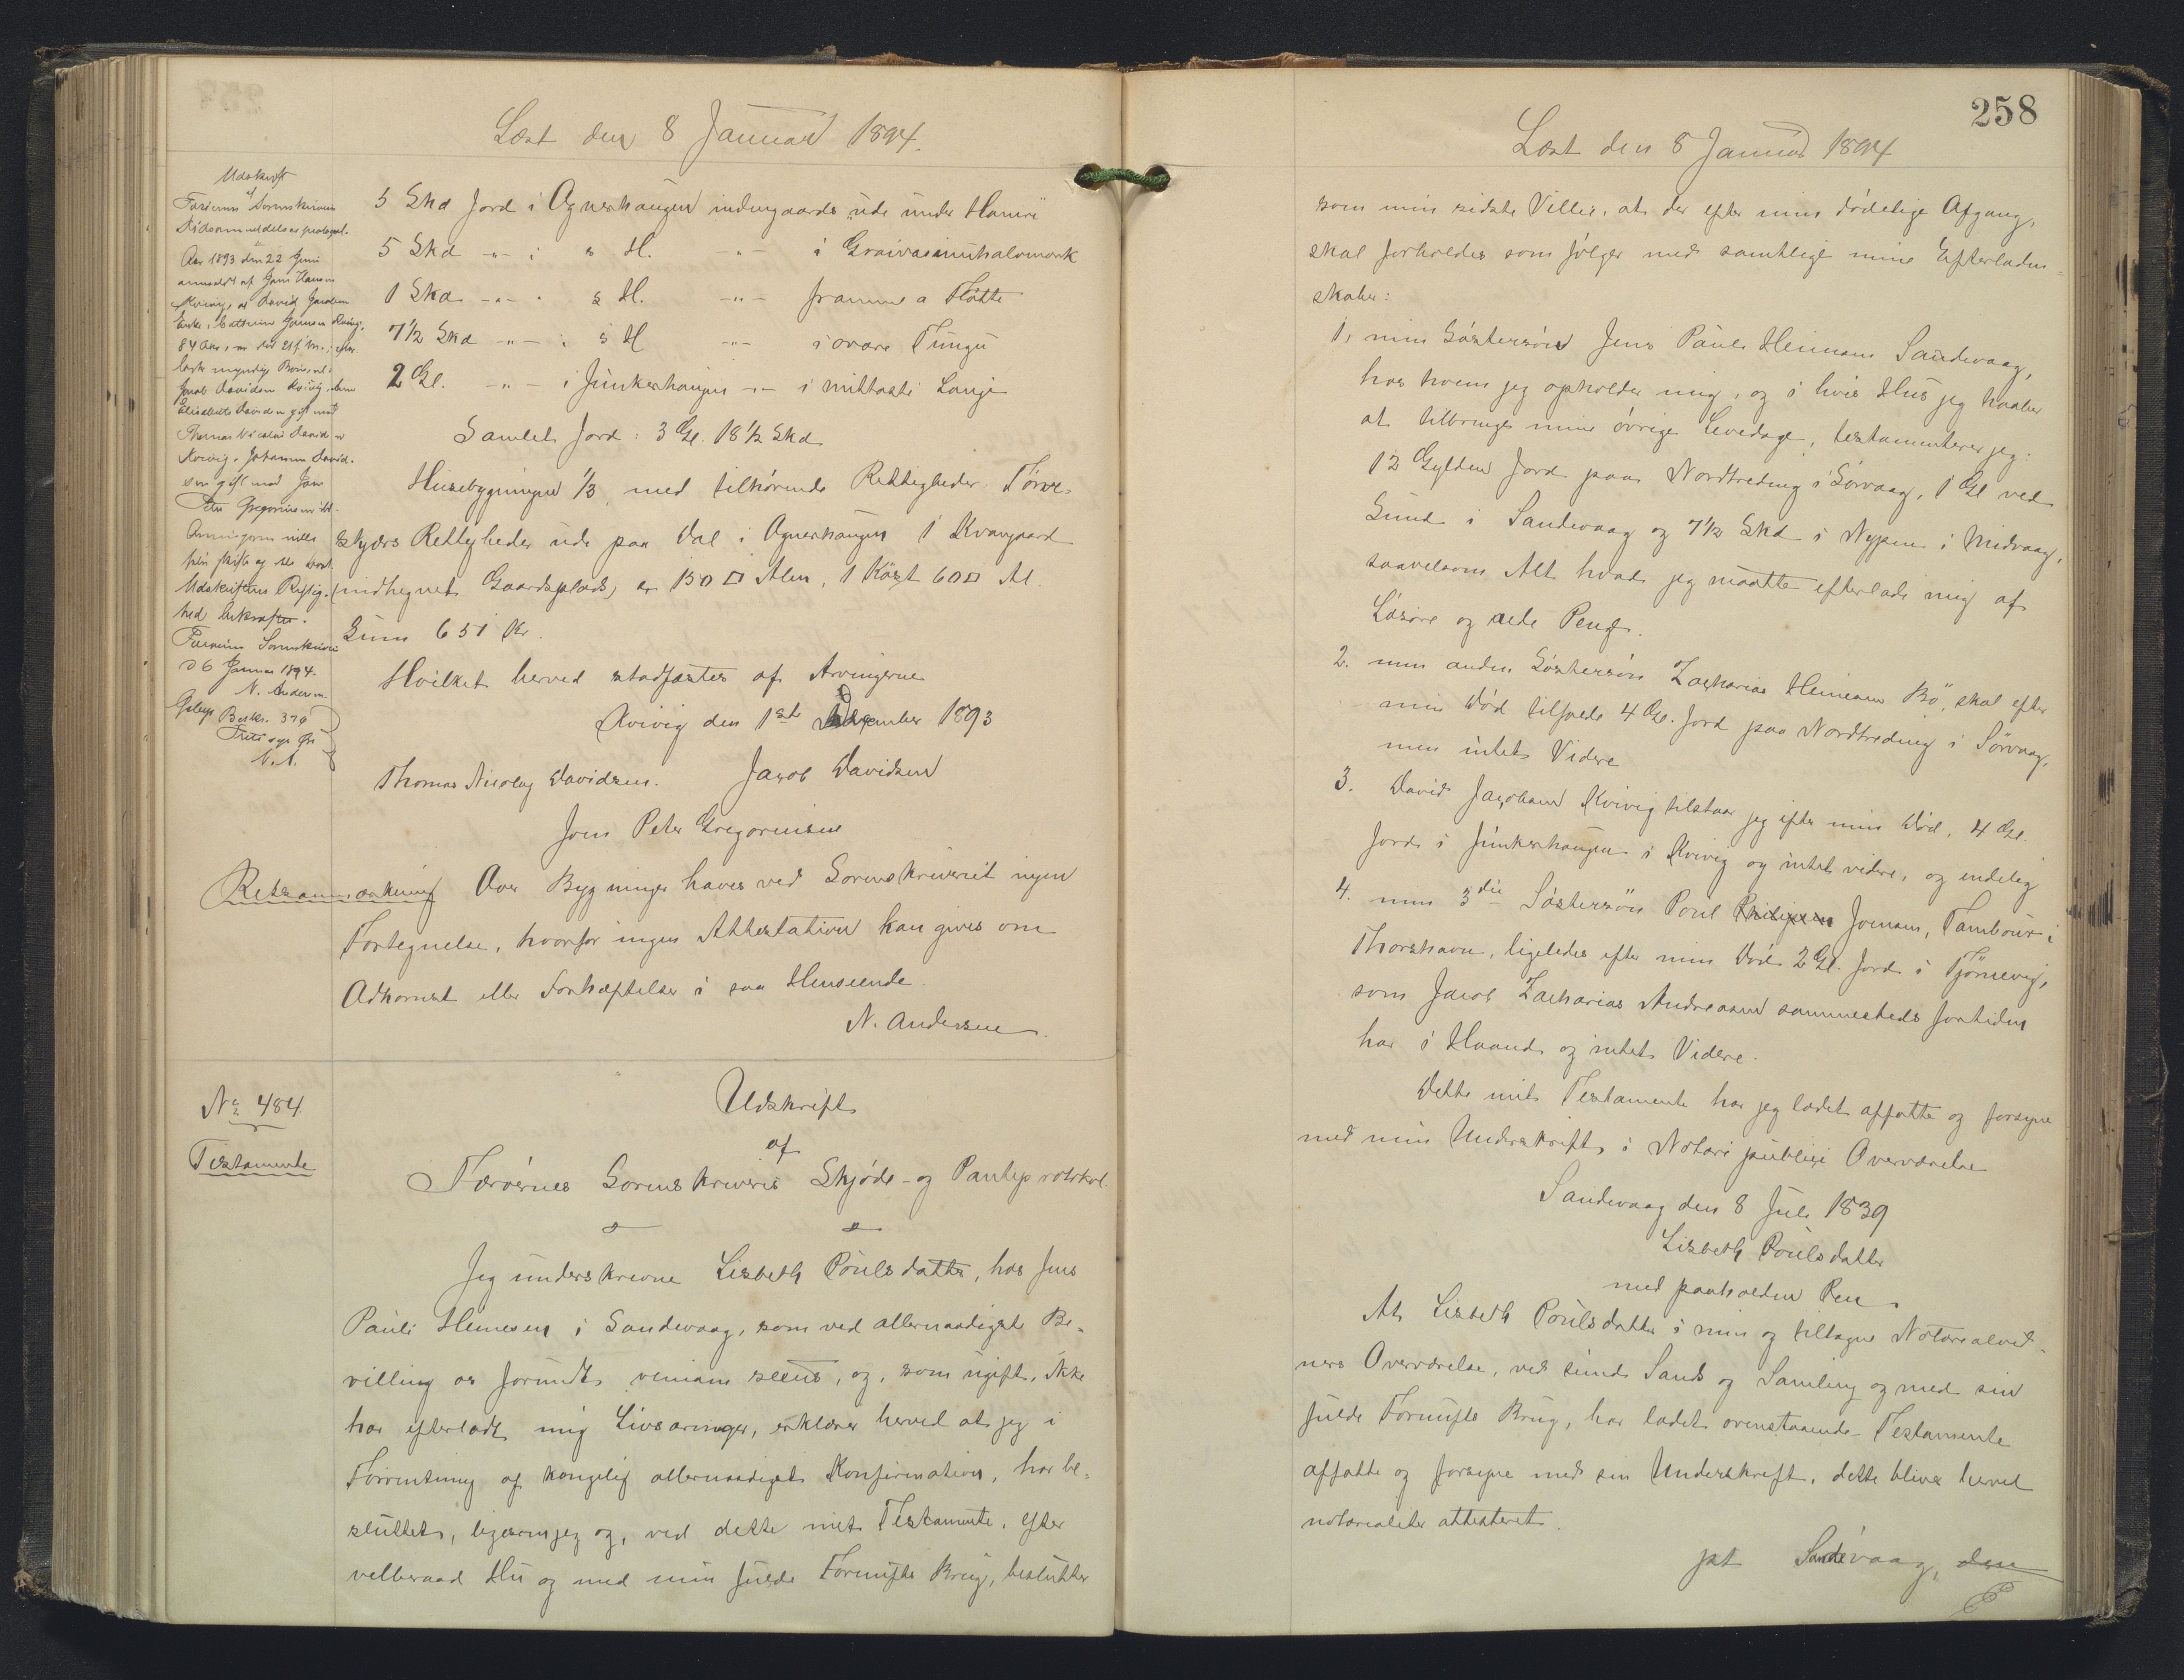 Læst den 8 Januar 1894.
Udskrift
af
Færøernes Sorenskriveris
Dødsanmeldelsesprotokol.
Aar 1893 den 22 Juni
anmeldt af Joen Hansen
Kvivig, at David Jacobsen
Enke, Cathrine Joensen Kvivig,
84 Aar, er død 21 f. M.; efter-
lader myndige Børn, nl:
Jacob Davidsen Kvivig, den
Elisabeth Davidsen gift med
Thomas Nicolai Davidsen
Kvivig, Johanne David-
sen gift med Joen
Peter Gregoriusen ibd.
Arvingerne ville
selv skifte og dele Boet.
Udskriftens Rigtig-
hed bekræftes.
Færøernes Sorenskriveri
d 6 Januar 1894.
N. Andersen.
Gebyr Beskr. 34 Ø
N. A.
5 Skd Jord i Ognerhaugen indengaards ude under Hamri
5 Skd -"- i s H. -"- i Graivasmuhalomork
1 Skd -"- " s H. -"- framme a Fløtte
7½ Skd -"- i s H -"- i ovare Tungu
2 Gl. -"- i Junkerhaugen -"- i mittasti Langi
Samlet Jord: 3 Gl. 18½ Skd
Husebygningen 1/3 med tilhørende Rettigheder Tørve-
skjærs Rettigheder ude paa Dal i Ognerhaugen 1 Kvangaard
(indhegnet Gaardsplads) er 130 □ Alen, 1 Køst 60□ Al.
Sum 651 Kr.
Hvilket herved stadfæstes af Arvingerne
Kvivig den 1ste December 1893
Thomas Nicolay Davidsen. Jacob Davidsen
Joen Peter Gregoriusen
Retsanmærkning Over Bygninger haves ved Sorenskriveriet ingen
Fortegnelse, hvorfor ingen Attestation kan gives om
Adkomst eller Forhæftelser i saa Henseende.
N. Andersen.
No 484
Testamente
Udskrift
af
Færøernes Sorenskriveris Skjøde- og Panteprotokol.
Jeg underskrevne Lisbeth Poulsdatter, hos Jens
Pauli Heinesen i Sandevaag, som ved allernaadigst Be-
villing er forundt veniam , og, som ugift, ikke
har efterladt mig Livsarvinger, erklærer herved at jeg i
Forventning af kongelig allernaadigst Konfirmation, har be-
sluttet, ligesom jeg og, ved dette mit Testamente, efter
velberaad Hu og med min fulde Fornufts Brug, beslutter
258
Læst den 8 Januar 1894
som min sidste Villie, at der efter min dødelige Afgang,
skal forholdes som følger med samtlige mine Efterladen-
skaber:
1, min Søstersøn Jens Pauli Heinesen Sandevaag,
hos hvem jeg opholder mig, og i hvis Hus jeg haaber
at tilbringe mine øvrige Levedage, testamenterer jeg:
12 Gylden Jord paa Nordtreding i Sørvaag, 1 Gl ved
Sund i Sandevaag og 7½ Skd i Nypen i Midvaag,
saavelsom Alt hvad jeg maatte efterlade mig af
Løsøre og rede Penge.
2. min anden Søstersøn Zacharias Heinesen Bø, skal efter
min Død tilfalde 4 Gl. Jord paa Nordtreding i Sørvaag,
men intet Videre
3. David Jacobsen Kvivig tilstaar jeg efter min Død, 4 Gl.
Jord i Junkerhaugen i Kvivig og intet videre, og endelig
4. min 3die Søstersøn Poul Joensen, Tambour i
Thorshavn, ligeledes efter min Død 2 Gl. Jord i Tjørnevig,
som Jacob Zacharias Andreasen sammesteds fortiden
har i Haand og intet Videre.
Dette mit Testamente har jeg ladet affatte og forsyne
med min Underskrift i Notarii publici Overværelse
Sandevaag den 8 Juli 1839
Lisbeth Poulsdatter
med paaholden Pen
At Lisbeth Poulsdatter i min og tiltagne Notarialvid-
ners Overværelse, ved sund Sands og Samling og med sin
fulde Fornufts Brug, har ladet ovenstaaende Testamente
affatte og forsyne med sin Underskrift, dette blives herved
notarialiter attesteret.
pt Sandevaag, den